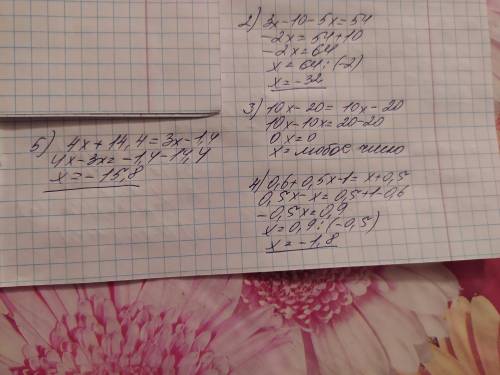 2) 3x-10-5x=54
-2x=54+10
-2x=64
x=64:(-2)
x=-32
3) 10x-20=10x-20
10x-10x=20-20
0x=0
x=любое число
4) 0,6+0,5x-1=x+0,5
0,5x-x=0,5+1-0,6
-0,5x=0,9
x=0,9:(-0,5)
x=-1,8
5) 4x+14,4=3x-1,4
4x-3x=-1,4-14,4
x=-15,8